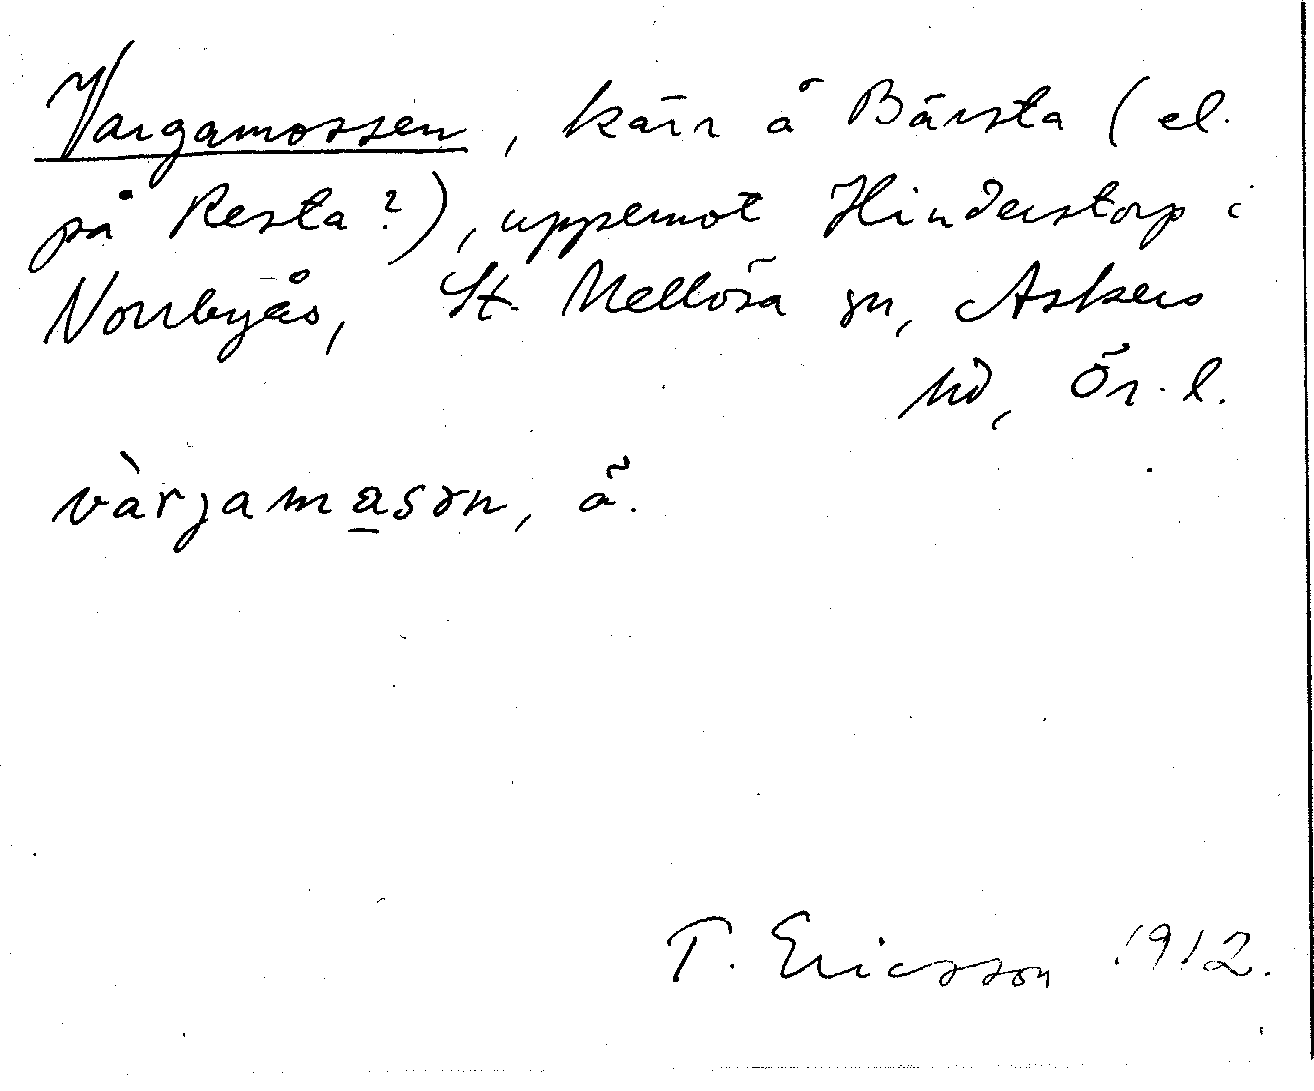 Vargamossen, kärr å Bärsta (el.
på Resta?), uppemot Hinderstorp i
Norrbyås, St. Mellösa sn, Askers
hd, Ör. l.
vàrjamasən, ä.
T. Ericsson 1912.